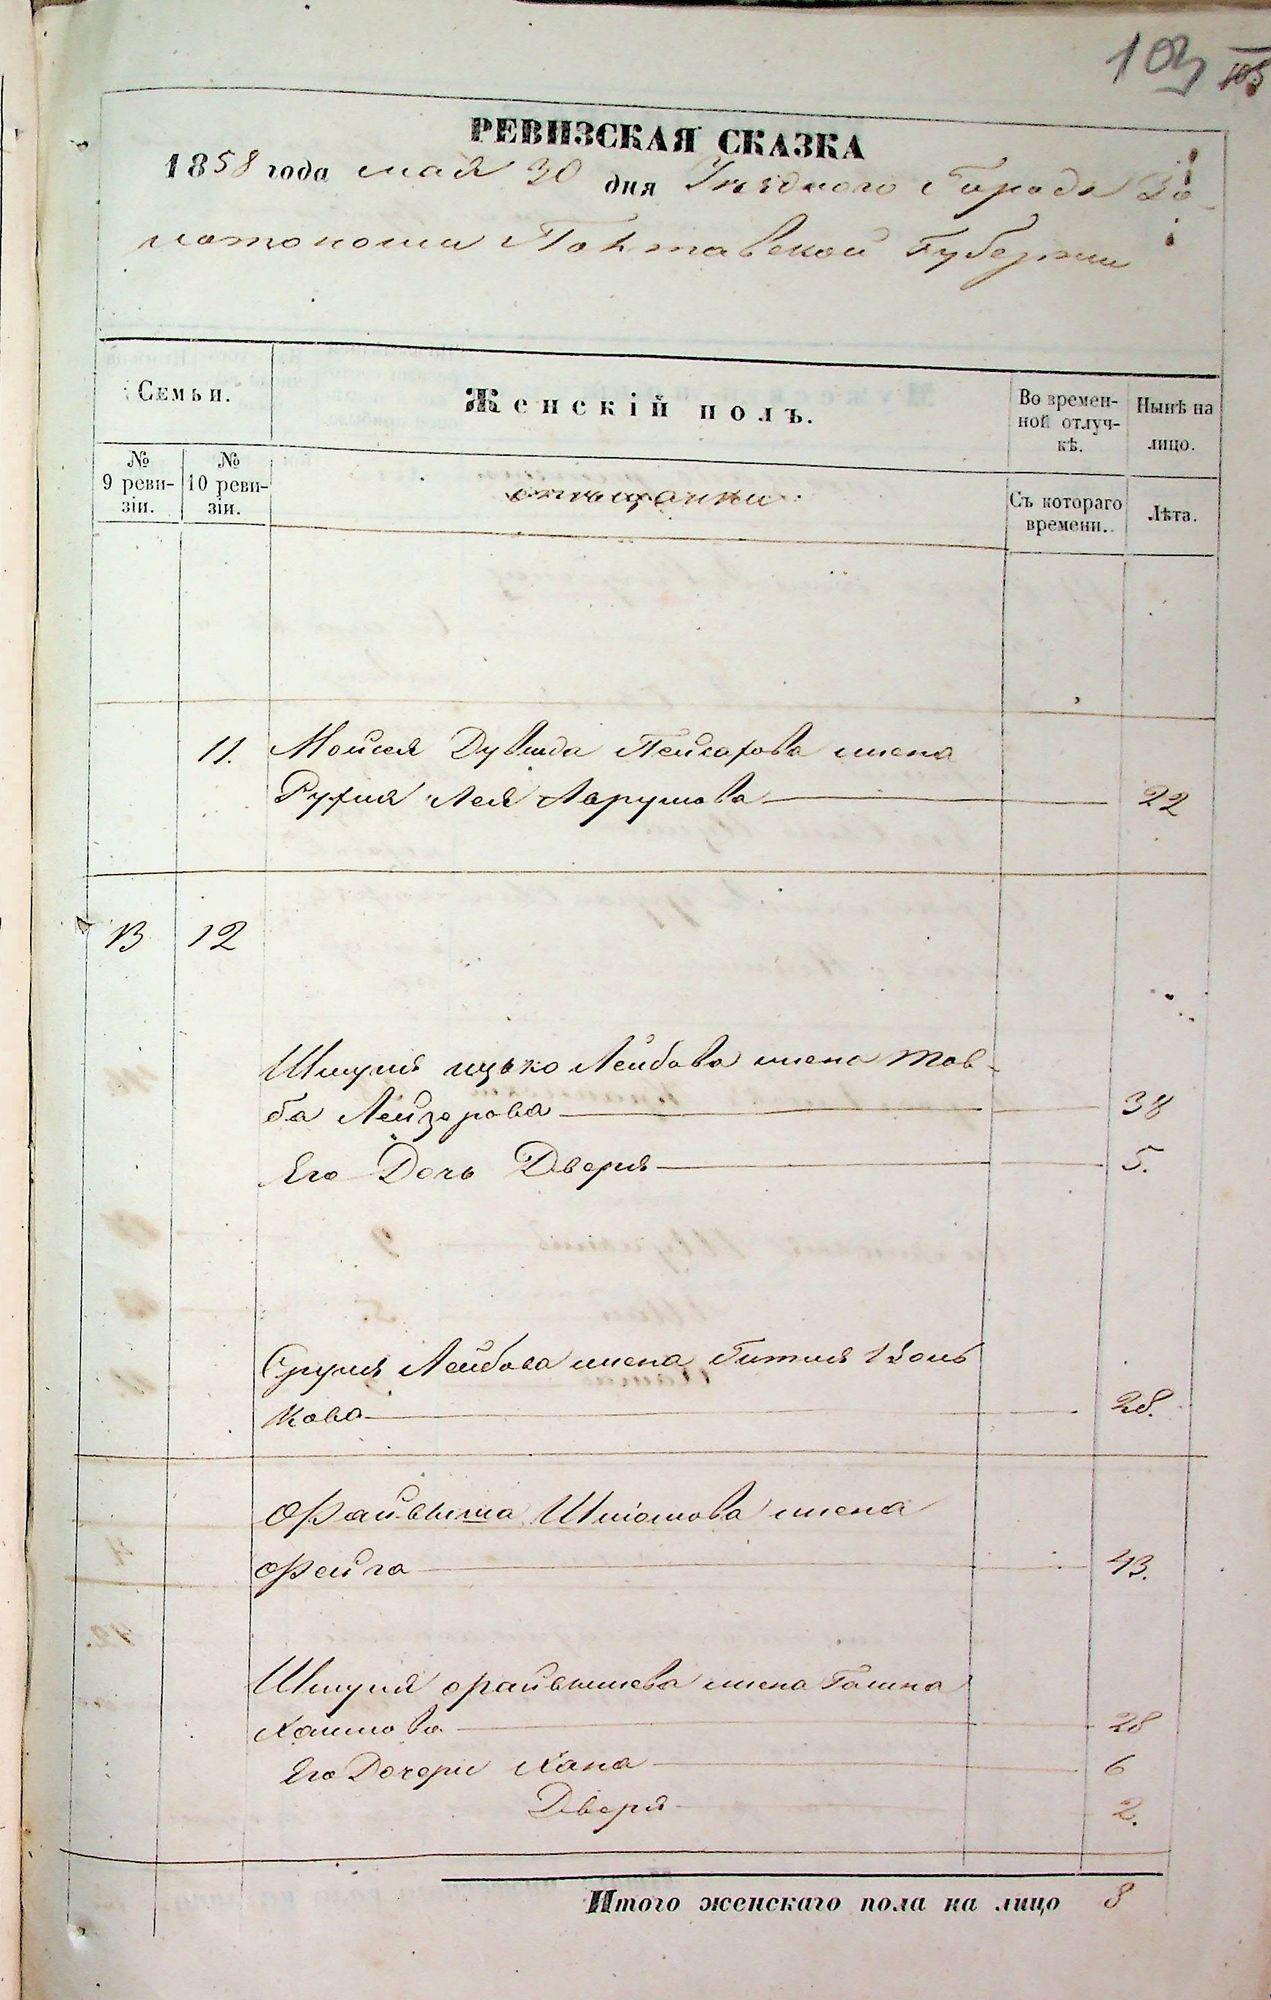 103
105
РЕВИЗСКАЯ СКАЗКА
1858 года мая 30 дня Уѣзднаго Города Зо-
лотоноши Полтавской Губерніи
Семьи.
Женскій полъ.
Во времен-
ной отлуч-
кѣ.
Нынѣ на
лицо.
№
9 реви-
зіи.
№
10 реви-
зіи.
мѣщанки
Съ котораго
времени.
Лѣта.
11. Мойсея Дувида Пейсахова жена
Рухля ЛеяАврумова 22
13 12
Шмуля ицько Лейбова жена Тов-
ба Лейзерова 38
Его Дочь Дверя 5.
Сруля Лейбова жена Гитля Воль
кова 28.
Файвиша Шліомова жена
Фейга 43.
Шмуля Файвишева жена
Хаимова 28
Его Дочери Хана 6
Дверя 2.
Итого женскаго пола на лицо 8